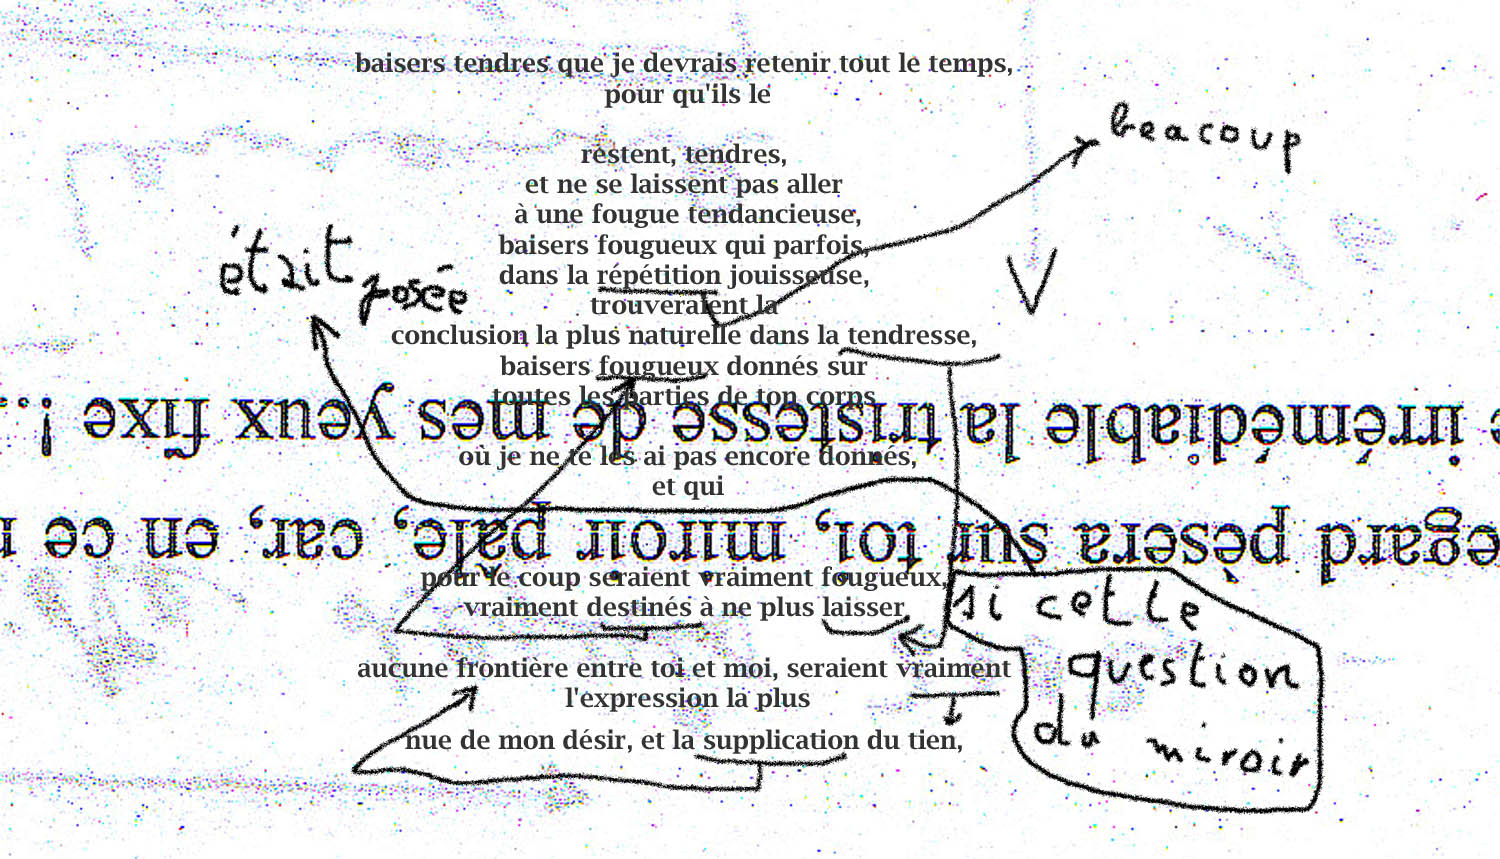 baisers tendres que je devrais retenir tout le temps,
pour qu'ils le
beacoup
restent, tendres,
et ne se laissent pas aller
à une fougue tendancieuse,
baisers fougueux qui parfois,
était posée
dans la répétition jouisseuse,
trouveraient la
conclusion la plus naturelle dans la tendresse,
baisers fougueux donnés sur
toutes les parties de ton corps
irrémédiable la tristesse de mes yeux fixe !...
où je ne te les ai pas encore donnés,
et qui
egard pèsera sur toi, miroir pâle, car, en ce
pour le coup seraient vraiment fougueux,
vraiment destinés à ne plus laisser
si cette
question
du miroir
aucune frontière entre toi et moi, seraient vraiment
l'expression la plus
nue de mon désir, et la supplication du tien,